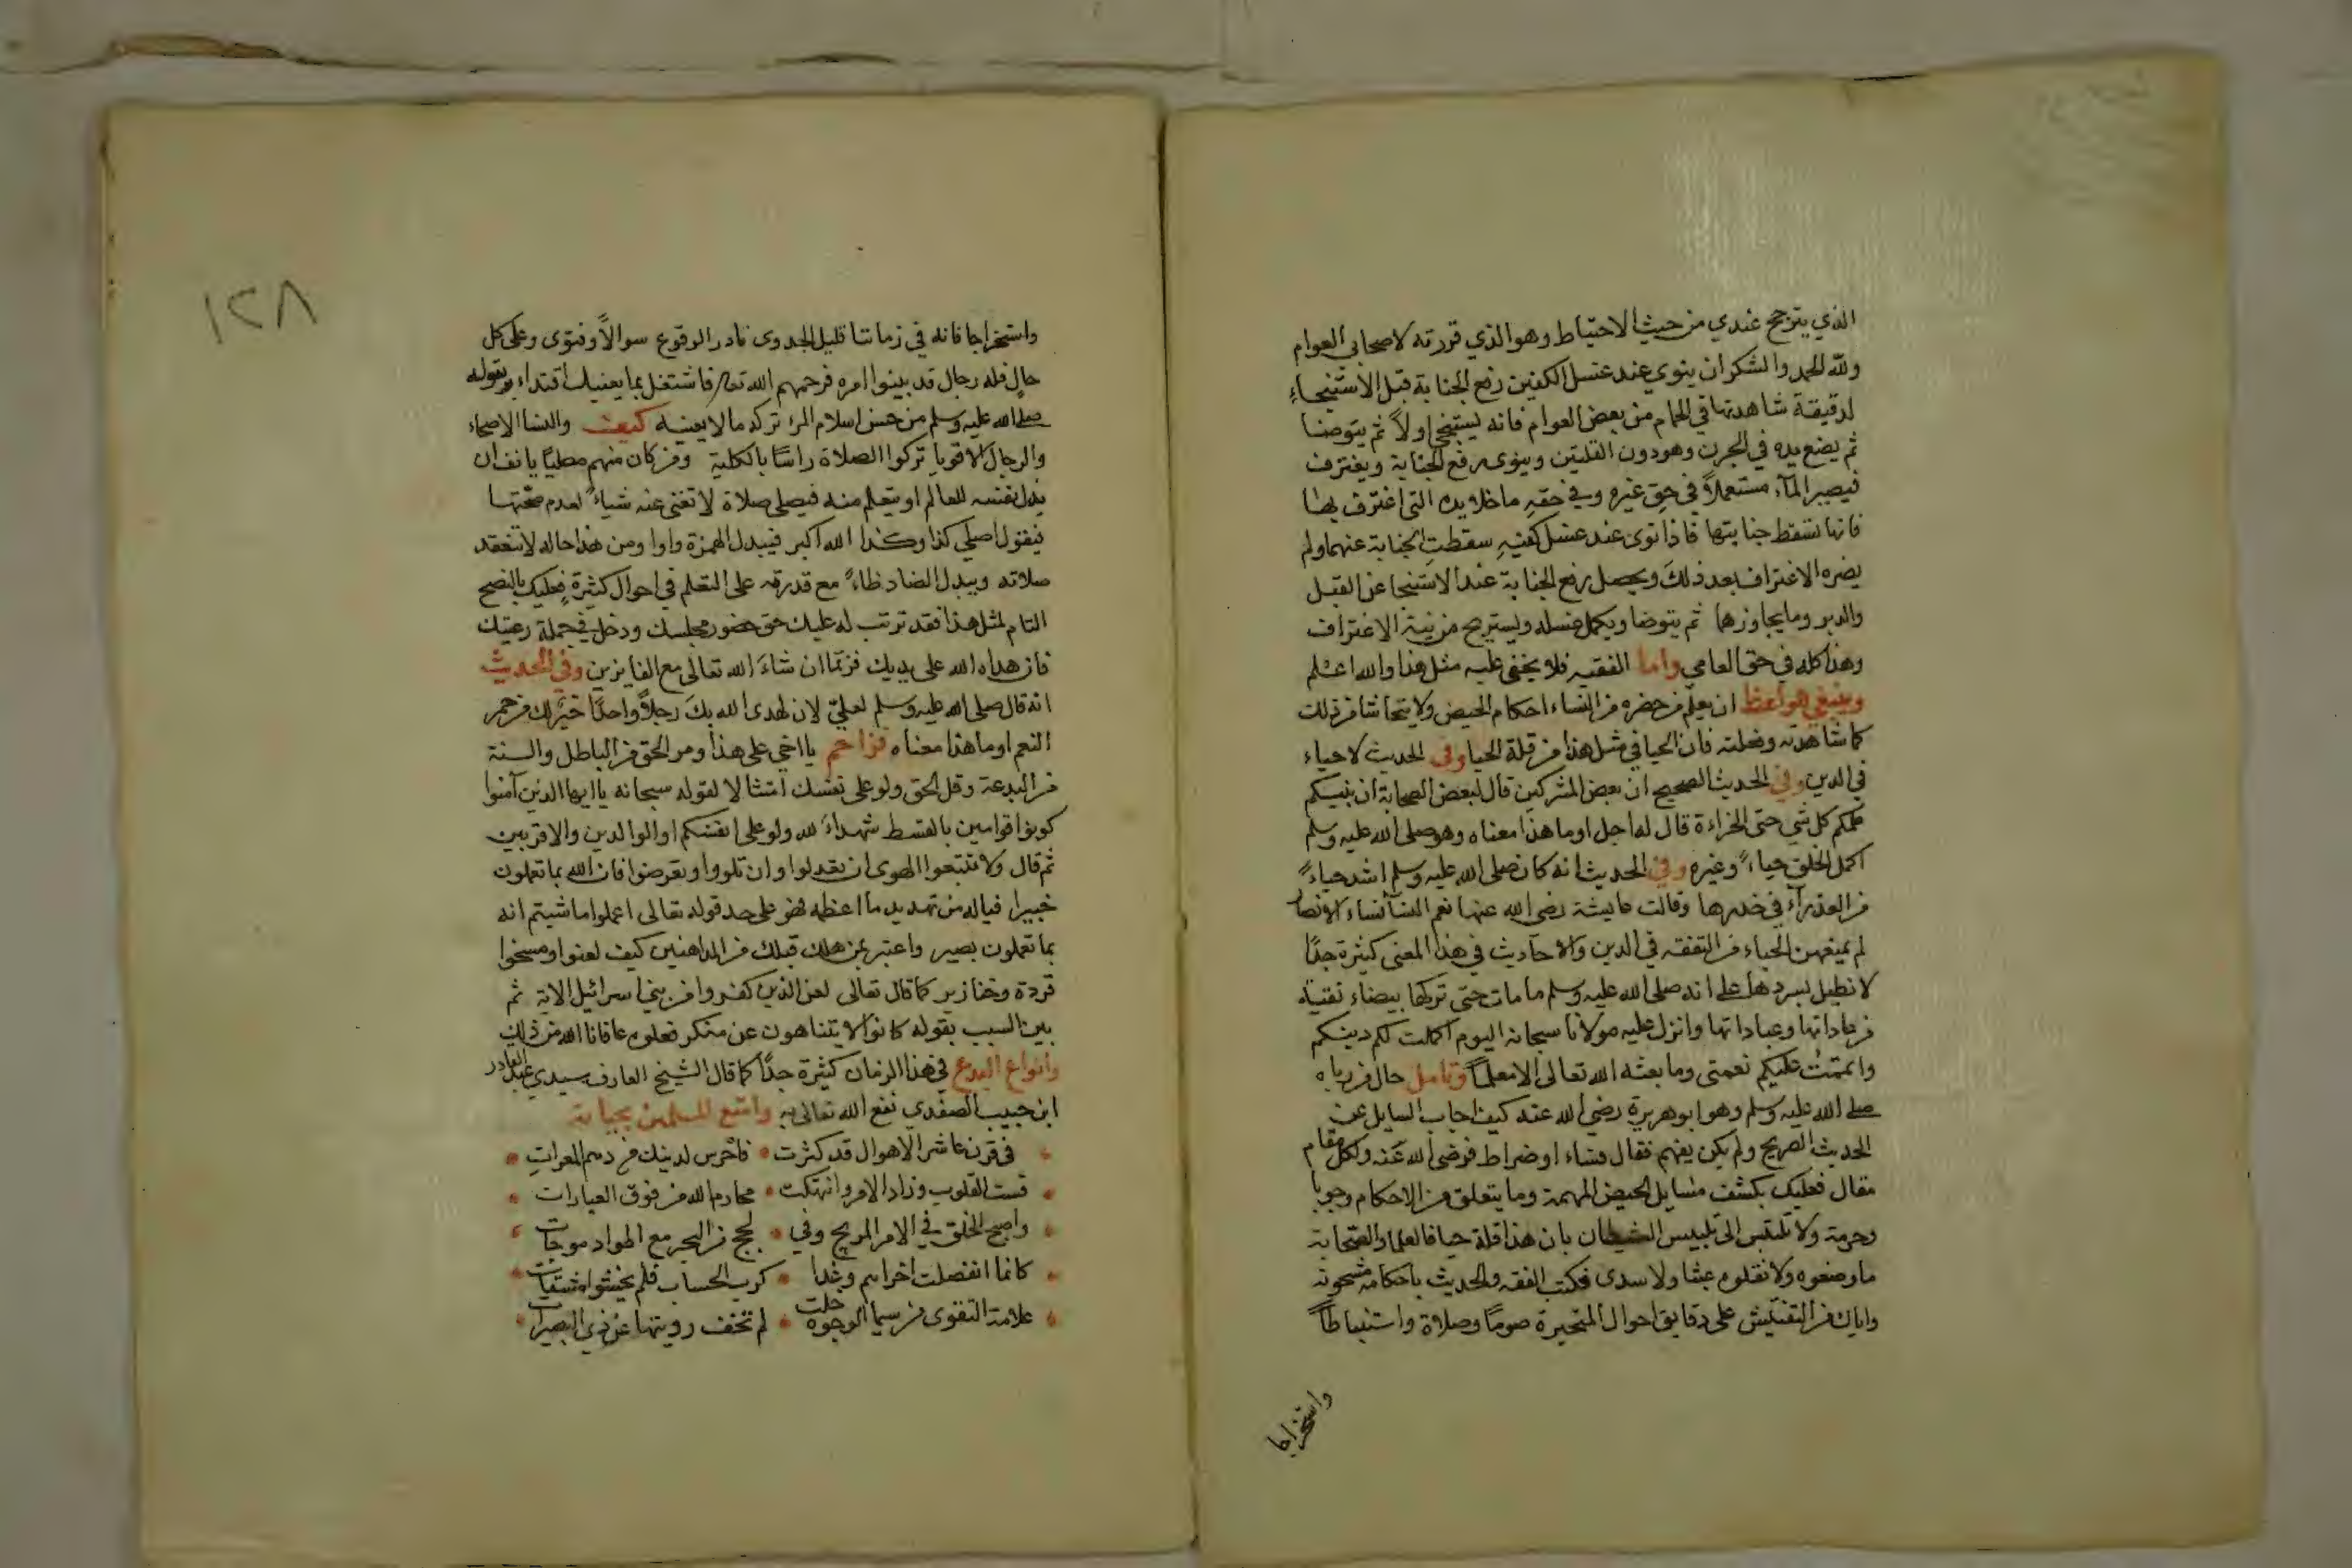 الذي يترجح عندي من حيث الاحتياط وهو الذي قررته لاصحابي العوام
ولله الحمد والشكر ان ينوي عند غسل الكفين رفع الجنابة قبل الاستنجاء
لدقيقة شاهدتها في الحمام من بعض العوام فانه يستنجي اولاً ثم يتوضا
ثم يضع يده في الجرن وهو دون القلتين وينوي رفع الجنابة ويغترف
فيصير المآء مستعملاً في حق غيره وفي حقه ما خلا يده التي اغترف بها
فانها تسقط جنابتها فاذا نوى عند غسل كفيه سقطت الجنابة عنهما ولم
يضره الاغتراف بعد ذلك ويحصل رفع الجنابة عند الاستنجا عن القبل
والدبر وما يجاوزهما ثم يتوضا ويكمل غسله ويستريح من نية الاغتراف
وهذا كله في حق العامي واما الفقيه فلا يخفى عليه مثل هذا والله اعلم
وينبغي ان يعلّم من حضره من النساء احكام الحيض ولا يتحاشا من ذلك
كما شاهدته وفعلته فان الحيا في مثل هذا من قلة الحيا وفي الحديث لا حياء
في الدين وفي الحديث الصحيح ان بعض المشركين قال لبعض الصحابة ان نبيكم
علمكم كل شي حتى الخراءة قال له اجل او ما هذا معناه وهو صلى الله عليه وسلم
اكمل الخلق حياءً وغيره وفي الحديث انه كان صلى الله عليه وسلم اشد حياءً
من العذرآء في خدرها وقالت عايشة رضي الله عنها نعم النسآ نساء الانصار
لم يمنعهن الحياء من التفقه في الدين والاحاديث في هذا المعنى كثيرة جدًا
لا نطيل بسردها على انه صلى الله عليه وسلم ما مات حتى تركها بيضاء نقية
من عاداتها وعباداتها وانزل عليه مولانا سبحانه اليوم اكملت لكم دينكم
واتممت عليكم نعمتي وما بعثه الله تعالى الا معلماً وتامل حال من رباه
صلى الله عليه وسلم وهو ابو هريرة رضي الله عنه كيف اجاب السايل عن
الحديث الصريح ولم يكن يفهم فقال فساء او ضراط فرضي الله عنه ولكل مقام
مقال فعليك بكشف مسايل الحيض المهمة وما يتعلق من الاحكام وجوبا
وحرمة ولا تلتفت الى تلبيس الشيطان بان هذا قلة حيا فالعلما والصحابة
ما وضعوه ولا نقلوه عبثا ولا سدى فكتب الفقه والحديث باحكامه مشحونه
واياك من التفتيش على دقايق احوال المتحيرة صومًا وصلاة واستنباطاً
واستخراجا
١٢٨
واستخراجا فانه في زماننا قليل الجدوى نادر الوقوع سوالاً وفتوى وعلى كل
حالٍ فله رجال قد بينوا امره فرحمهم الله تعالى فاشتغل بما يعنيك اقتداء بقوله
صلى الله عليه وسلم من حسن اسلام المرء تركه ما لا يعنيه كيف والنسا الاصحاء
والرجال الاقويا تركوا الصلاة راسًا بالكلية ومن كان منهم مصليًا يانف ان
يذل نفسه للعالم او يتعلم منه فيصلي صلاة لا تغني عنه شياءً لعدم صحتها
فيقول اصلي كذا وكذا الله اكبر فيبدل الهمزة واوا ومن هذا حاله لا تنعقد
صلاته ويبدل الضاد ظاءً مع قدرته على التعلم في احوال كثيرة فعليك بالنصح
التام لمثل هذا فقد ترتب له عليك حق حضور مجلسك ودخل في جملة رعيتك
فان هداه الله على يديك فزتما ان شاءَ الله تعالى مع الفايزين وفي الحديث
انه قال صلى الله عليه وسلم لعلي لان يهدي الله بكَ رجلاً واحدًا خير لك من حمر
النعم او ما هذا معناه فزاحم يا اخي على هذا ومر الحق من الباطل والسنة
من البدعة وقل الحق ولو على نفسك امتثالا لقوله سبحانه يا ايها الذين آمنوا
كونوا قوامين بالقسط شهداءَ لله ولو على انفسكم او الوالدين والاقربين
ثم قال ولا تتبعوا الهوى ان تعدلوا وان تلووا او تعرضوا فان الله بما تعملون
خبيرا فياله من تهديد ما اعظمه فهو على حد قوله تعالى اعملوا ما شيتم انه
بما تعملون بصير واعتبر بمن هلك قبلك من المداهنين كيف لعنوا ومسخوا
قردة وخنازير كما قال تعالى لعن الذين كفروا من بني اسرائيل الاية ثم
بين السبب بقوله كانوا لا يتناهون عن منكر فعلوه عافانا الله من ذلك
وانواع البدع في هذا الزمان كثيرة جدًا كما قال الشيخ العارف سيدي عبد القادر
ابن حبيب الصفدي نفع الله تعالى به وامتع المسلمين بحياته
في قرن عاشر الاهوال قد كثرت فاحرس لدينك من دهم المعراتِ
قست القلوب وزاد الامر وانتهكت محارم الله من فوق العبارات
واصبح الخلق في الامر المريج وفي لجج من البحر مع اطواد موجات
كانما انفصلت اخراهم وغدا كرب الحساب فلم يخشوا مشقات
علامة التقوى من سيما الوجوه جلت لم تخف رويتها عن ذي البصيرات